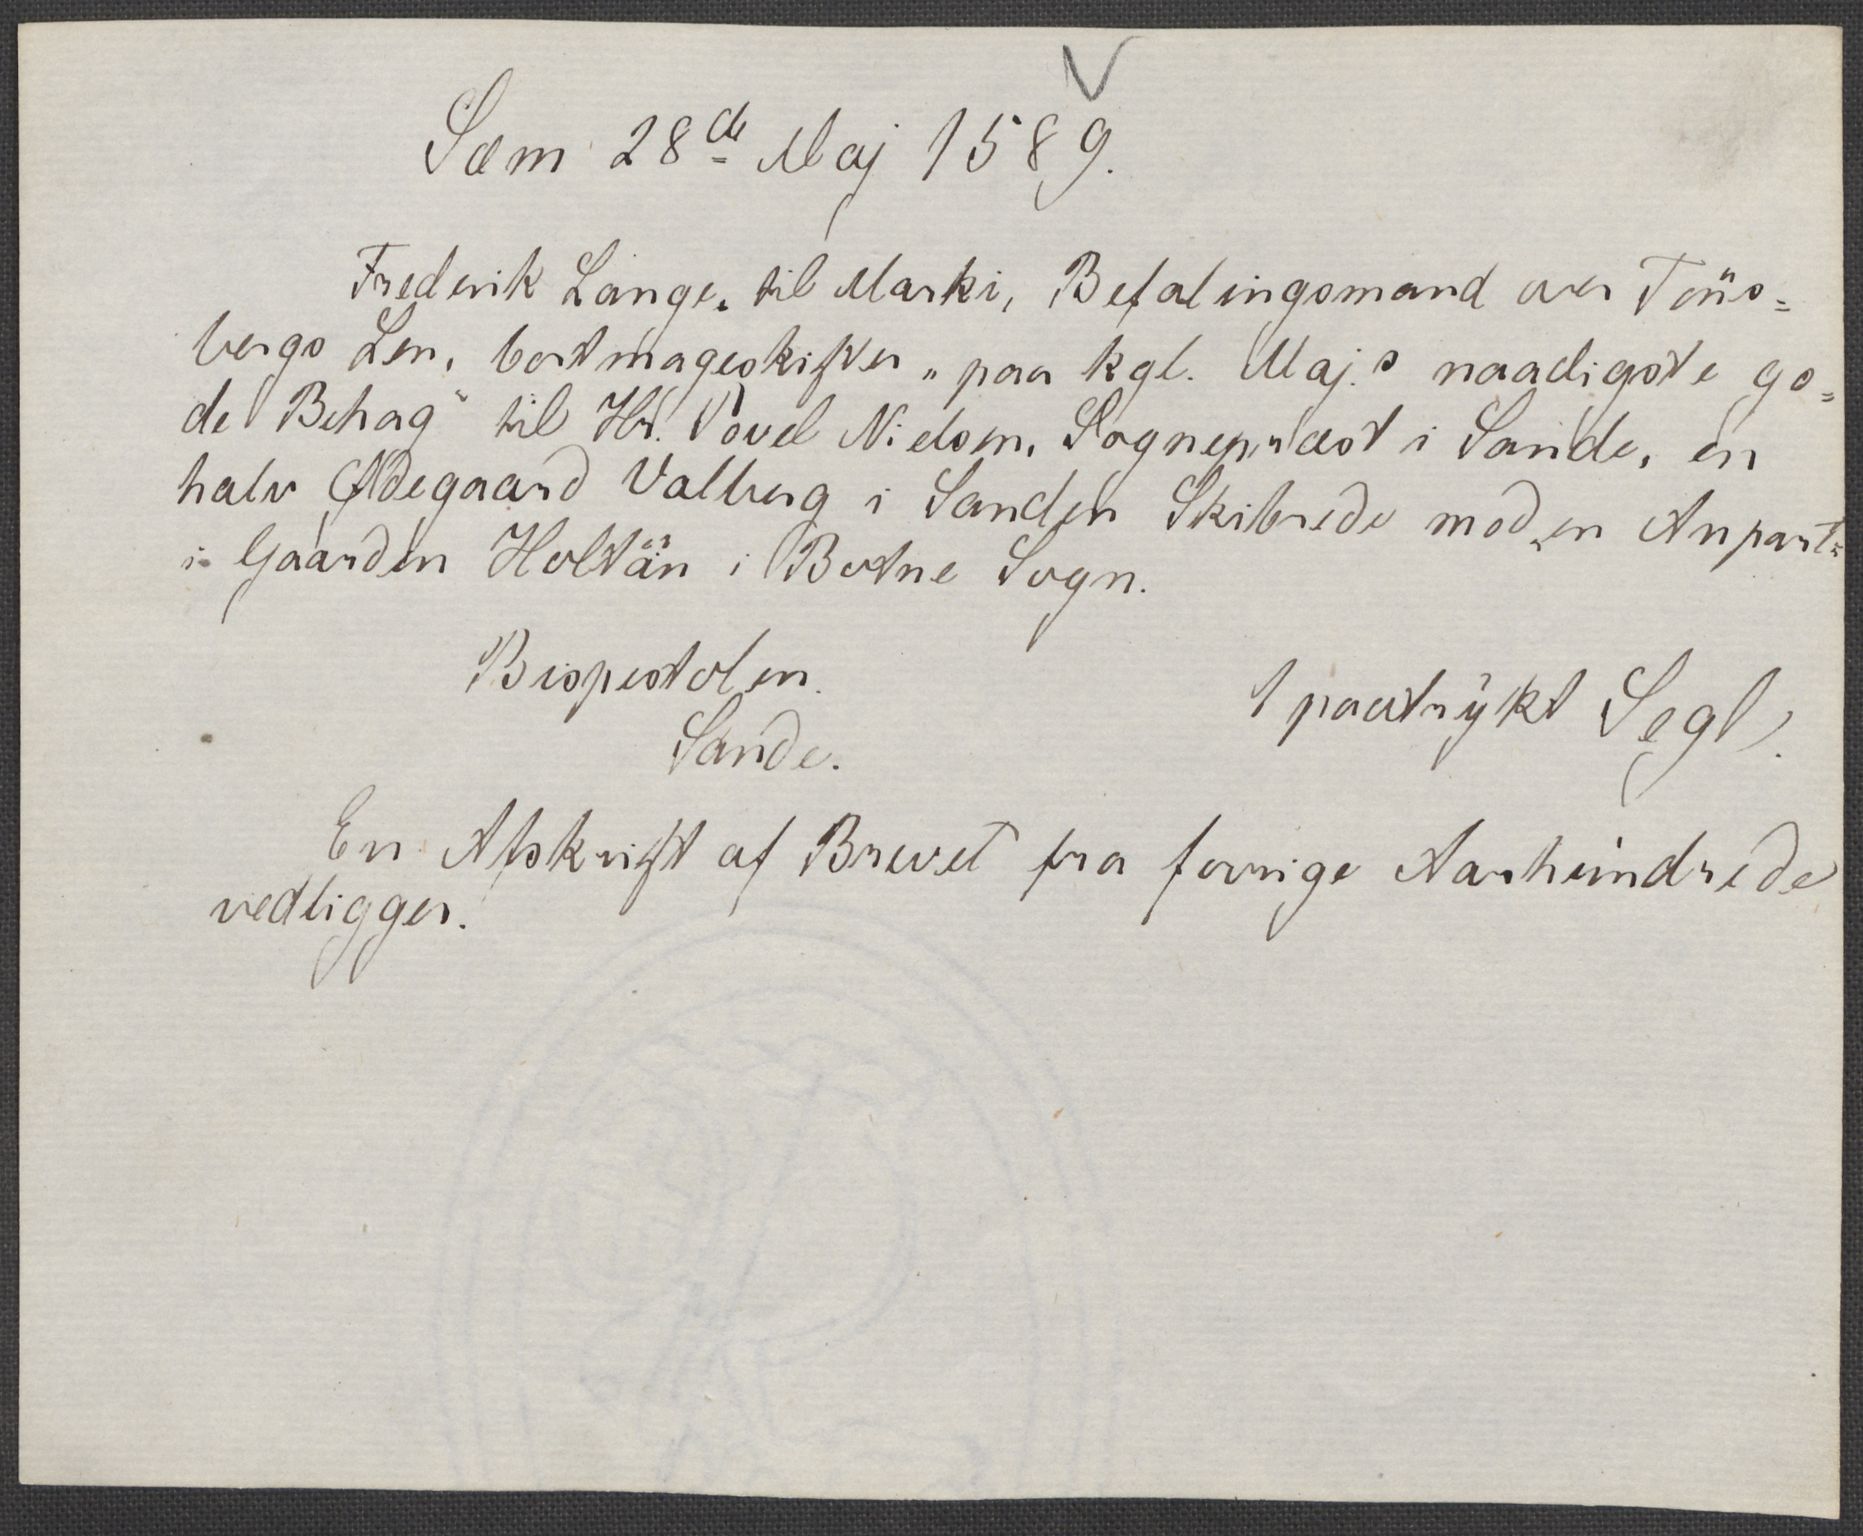 Sæm 28de Maj 1589.
Frederik Lange, til Marki, Befalingsmand over Töns=
bergs Len, bortmageskifter „paa kgl. Maj.s naadigste go=
de Behag“ til Hr. Povel Nielsen, Sognepræst i Sande, en
halv Ødegaard Valberg i Sanden Skibrede mod en Anpart
i Gaarden Holtan i Botne Sogn.
Bispestolen.
Sande.
1 paatrykt Segl.
En Afskrift af Brevet fra forrige Aarhundrede
vedligger.